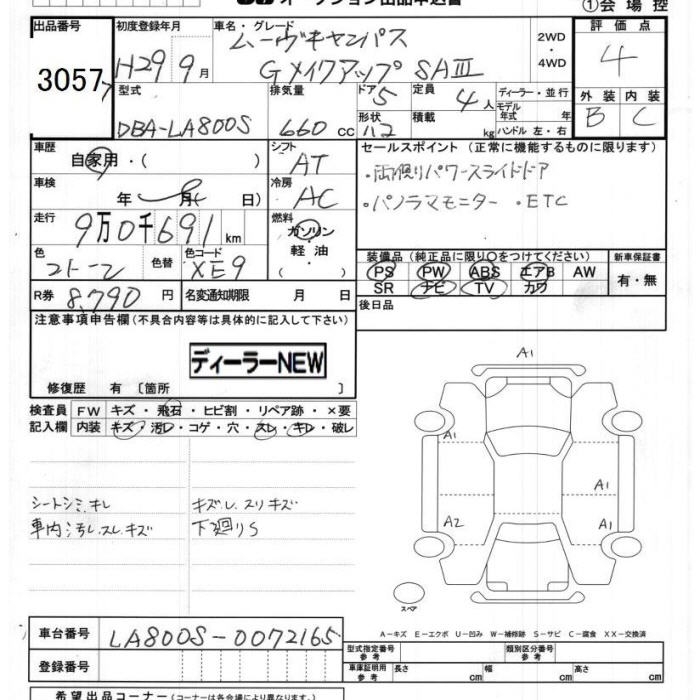 オークション出品申込書
①会場控
出品番号 初度登録年月 車名・グレード 評価点
3057 H29 9月 ムーヴキャンバス 2WD・4WD 4
Gメイクアップ SAⅢ
型式 排気量 ドア 5 定員 4人 ディーラー・並行 外装 内装
DBA-LA800S 660cc 形状 積載 kg モデル年式 年 B C
ハンドル 左・右
車歴 自家用・( ) シフト AT セールスポイント (正常に機能するものに限ります)
車検 年 月( ) 冷房 AC ・両側パワースライドドア
・パノラマモニター ・ETC
走行 9万0千691km 燃料 ガソリン・軽油
色 2トーン 色替 色コード XE9 装備品 (純正品に限り○をつけてください) 新車保証書
PS PW ABS エアB AW 有・無
R券 8,790円 名変通知期限 月 日 SR ナビ TV カワ
後日品
注意事項申告欄 (不具合内容等は具体的に記入して下さい)
ディーラーNEW
修復歴 有 〔箇所 〕
検査員記入欄 FW キズ・飛石・ヒビ割・リペア跡・×要
内装 キズ・汚レ・コゲ・穴・スレ・キレ・破レ
シートシミ、キレ キズし、スリキズ
車内汚し、スレ、キズ 下廻りS
A1
A1
A1
A2 A1
スペア
A−キズ E−エクボ U−凹み W−補修跡 S−サビ C−腐食 XX−交換済
車台番号 LA800S-0072165 型式指定番号 参考 類別区分番号 参考
登録番号 車庫証明用 参考 長さ cm 幅 cm 高さ cm
希望出品コーナー (コーナーは各会場により異なります。)